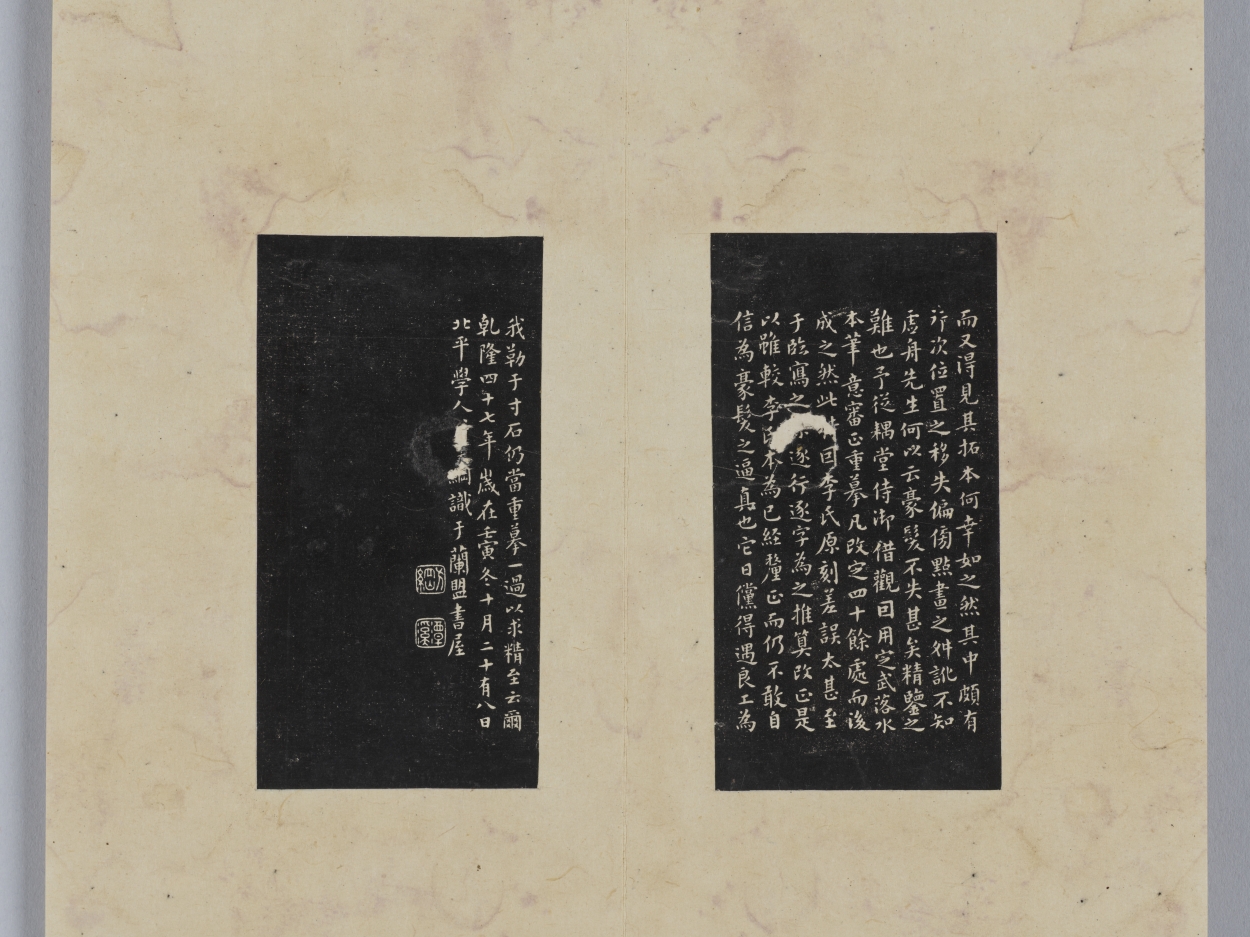 而又得見其拓本何幸如之然其中頗有
行次位置之移失偏傍點畫之舛訛不知
虛舟先生何以云豪髮不失甚矣精鑒之
難也予從耦堂侍御借觀因用定武落水
本筆意審正重摹凡改定四十餘處而後
成之然此 回李氏原刻差誤太甚至
于臨寫之 逐行逐字為之推算改正是
以雖較李氏本為已經釐正而仍不敢自
信為豪髮之逼真也它日儻得遇良工為
我勒于寸石仍當重摹一過以求精至云爾
乾隆四十七年歲在壬寅冬十月二十有八日
北平學人 綱識于蘭盟書屋
方綱
覃溪